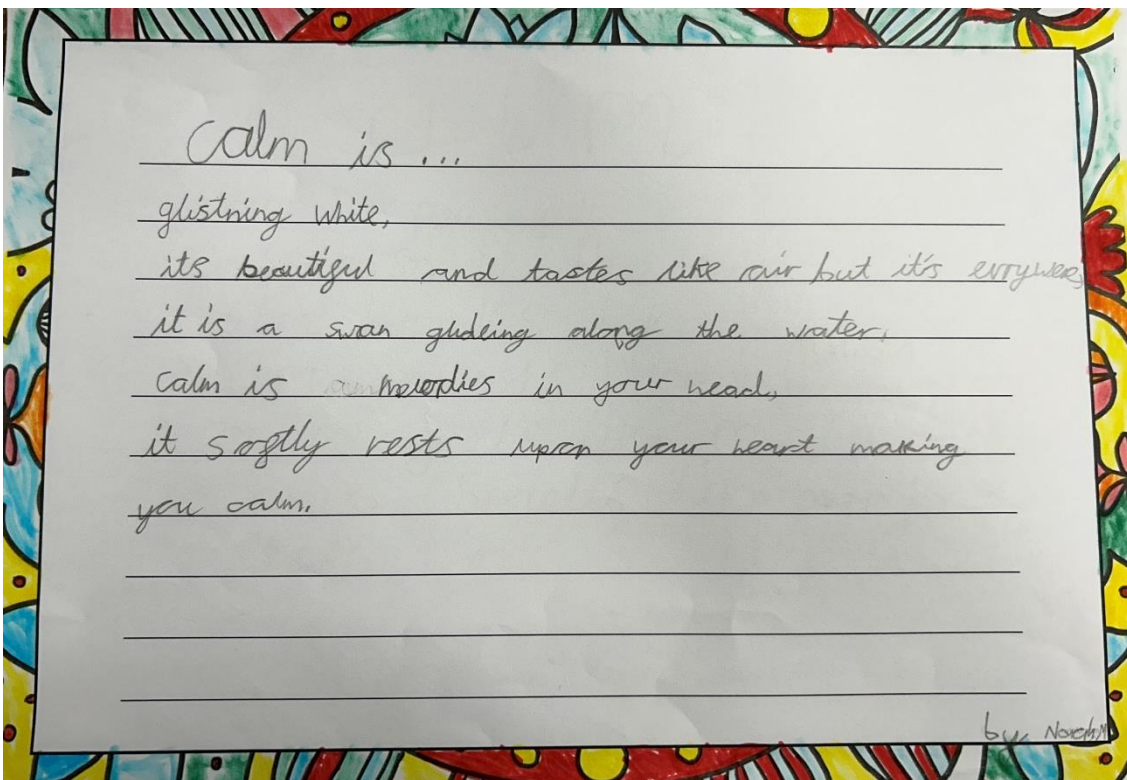 Calm is ...
glistning white,
its beautiful and tastes like air but it's evrywere,
it is a swan glideing along the water.
Calm is melodies in your head,
it softly rests upon your heart making
you calm.
by